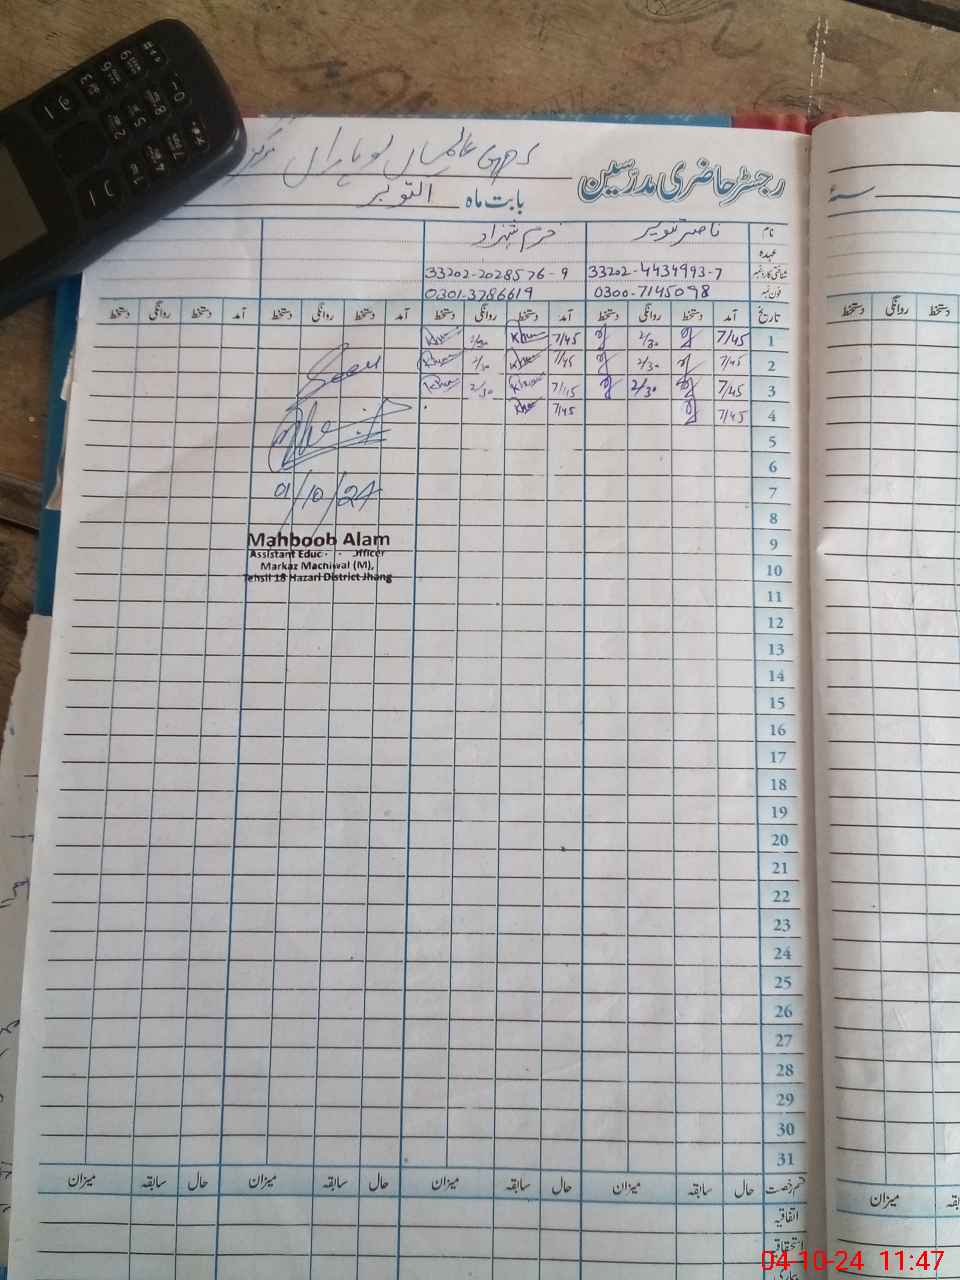 GPS
رجسٹر حاضری مدرسین
بابت ماہ اکتوبر
نام ناصر تنویر خرم شہزاد
عہدہ
شناختی کارڈ نمبر 33202-4434993-7 33202-2028576-9
فون نمبر 0300-7145098 0301-3786619
تاریخ آمد دستخط روانگی دستخط آمد دستخط روانگی دستخط آمد دستخط روانگی دستخط آمد دستخط روانگی دستخط
1 7/45 2/30 7/45 2/30
2 7/45 2/30 7/45 2/30
3 7/45 2/30 7/45 2/30
4 7/45 7/45
5
6
7
8
9
10
11
12
13
14
15
16
17
18
19
20
21
22
23
24
25
26
27
28
29
30
31
01/10/24
Mahboob Alam
Assistant Educ Officer
Markaz Machiwal (M),
Tehsil 18 Hazari District Jhang
قسم رخصت حال سابقہ میزان حال سابقہ میزان حال سابقہ میزان حال سابقہ میزان
اتفاقیہ
استحقاقیہ
دستخط روانگی دستخط
میزان
04-10-24 11:47